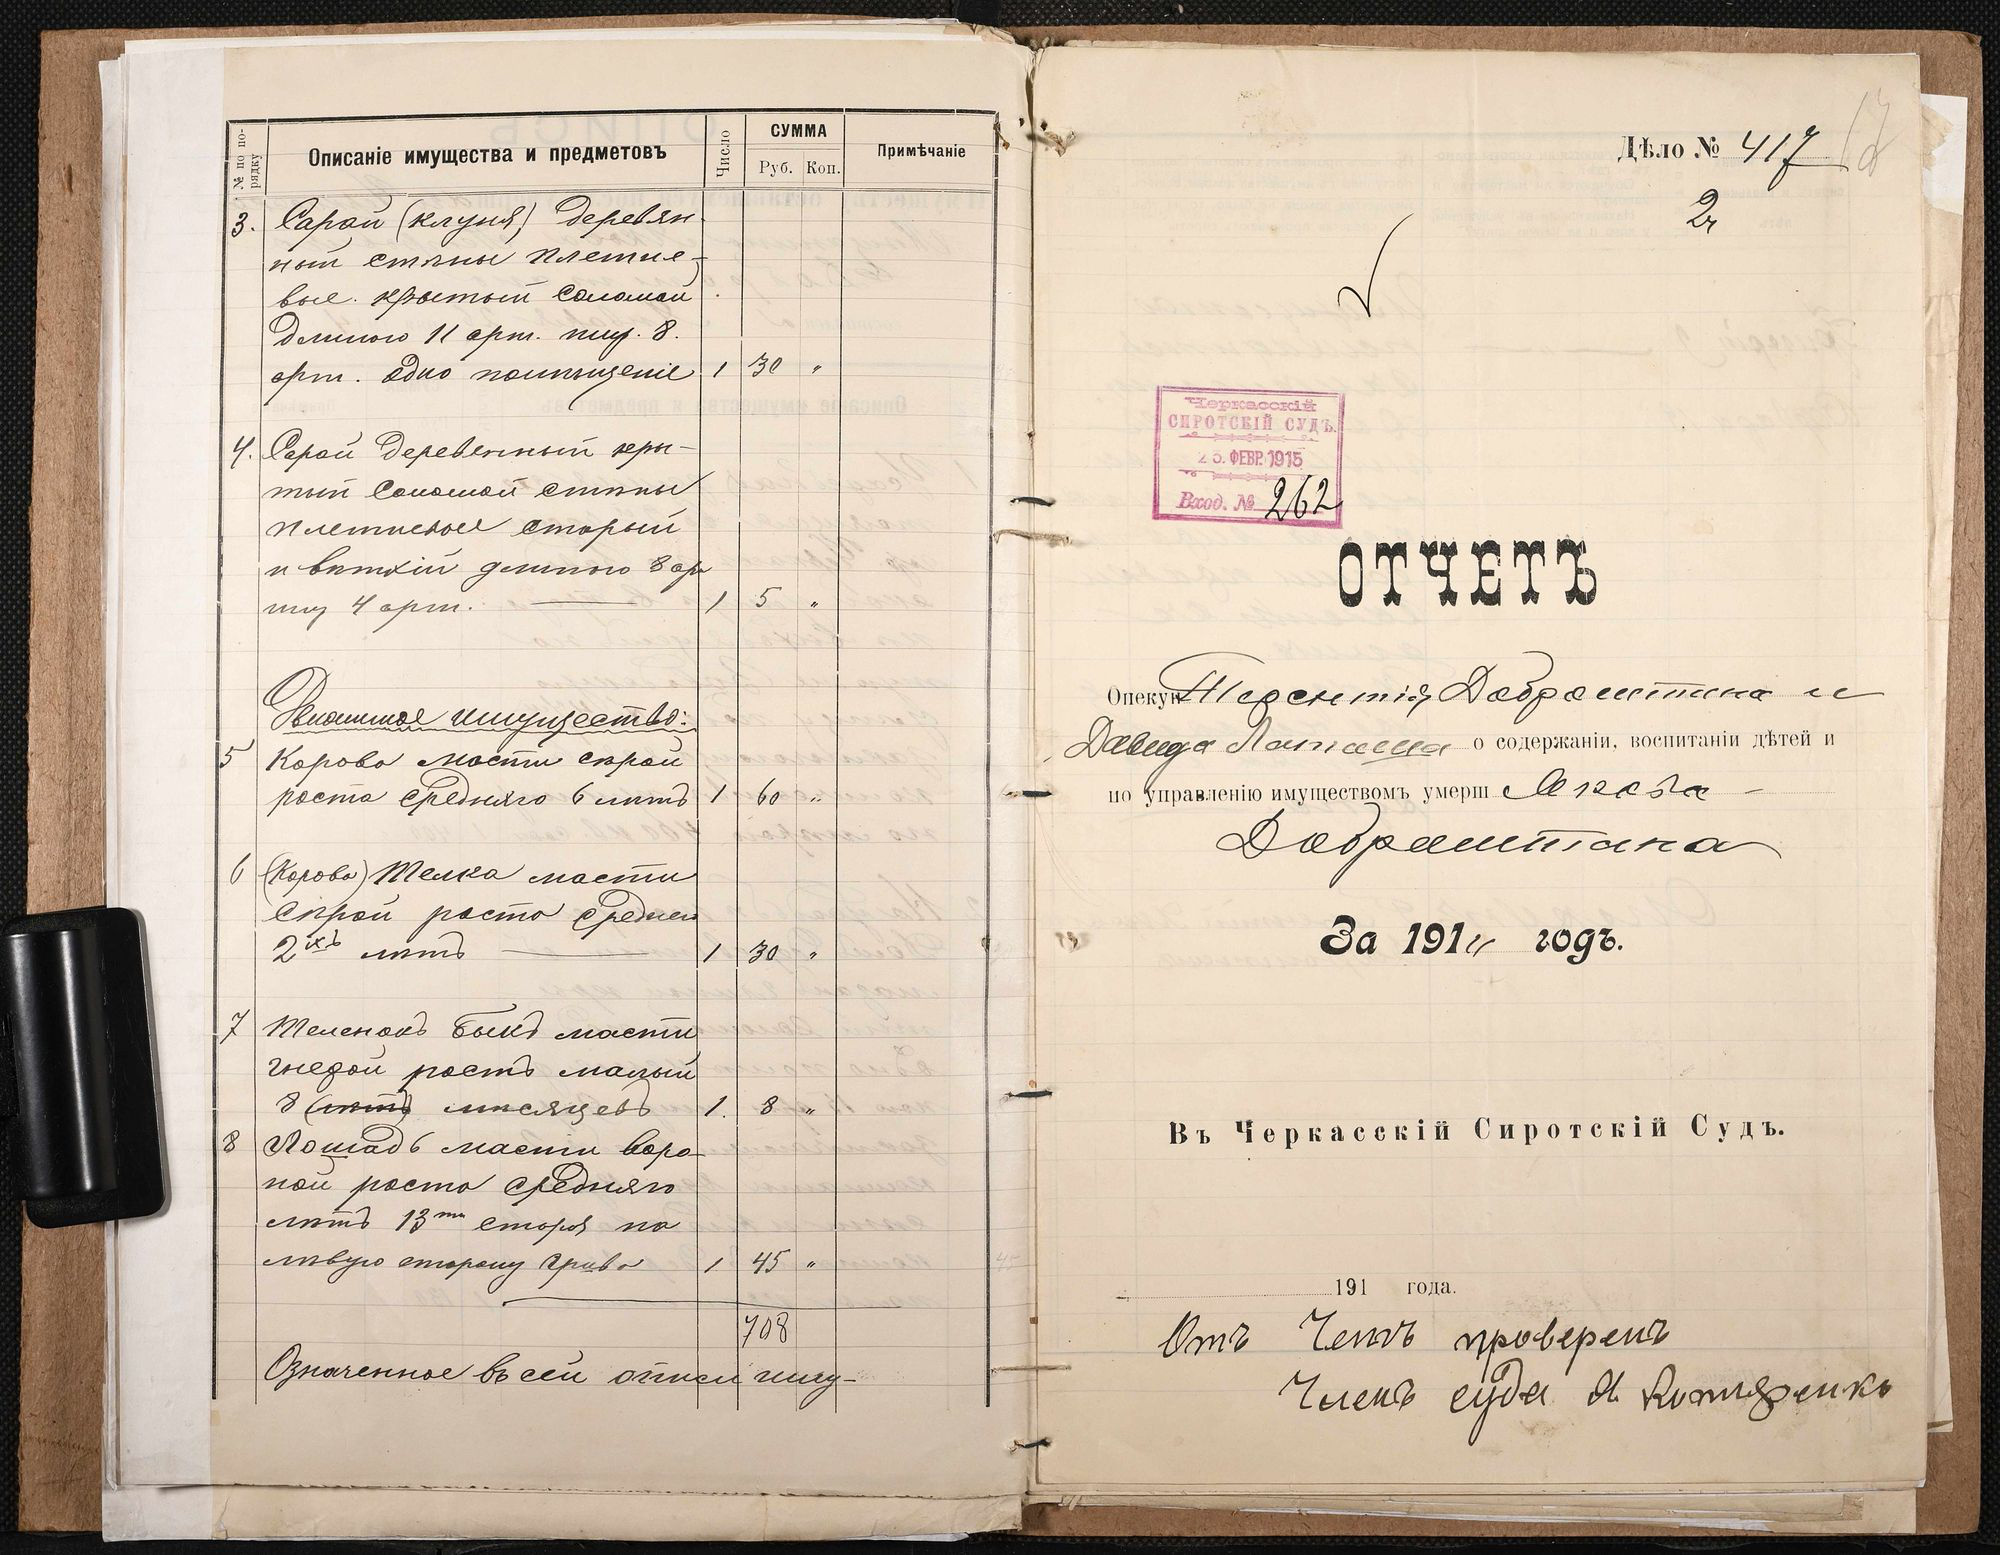 № по по-
рядку
Описаніе имущества и предметовъ
Число
СУММА
Руб. Коп.
Примѣчаніе
3. Сарай (клуня) деревян-
ный стѣны плетне-
вые. крытый соломой
длиною 11 арш. шир. 8.
арш. одно помѣщеніе 1 30 "
4. Сарай деревянный кры-
тый соломой стѣны
плетневые старый
и ветхій длиною 8 ар
шир 4 арш. 1 5 "
Движимое имущество:
5 Корова масти сѣрой
роста средняго 6 лѣтъ 1 60 "
6 (Корова) Телка масти
сѣрой роста средней
2хъ лѣтъ 1 30 "
7 Теленокъ быкъ масти
гнедой ростъ малый
8 (лѣтъ) мѣсяцевъ 1. 8 "
8 Лошадь масти воро-
ной роста средняго
лѣтъ 13ти на
лѣвую сторону грива 1 45 "
708
Означенное въ сей описи иму-
Дѣло № 417
2
Черкасскій
СИРОТСКІЙ СУДЪ.
25. ФЕВР. 1915
Вход. № 262
ОТЧЕТЪ
Опекун Терентія Добраштана и
Давида о содержаніи, воспитаніи дѣтей и
по управленію имуществомъ умерш Якова
Добраштана
За 1914 годъ.
Въ Черкасскій Сиротскій Судъ.
191 года.
Отъ Четъ провѣренъ
Членъ суда